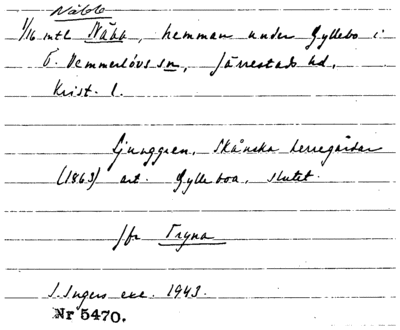 Näbb
1/16 mtl Näbb, hemman under Gyllebo i
Ö. Vemmerlövs sn, Järrestads hd,
Krist. l.
Ljunggren, Skånska herregårdar
(1863) art. Gylleboa, slutet.
jfr Tryna
I. Ingers exc. 1943.
Nr 5470.